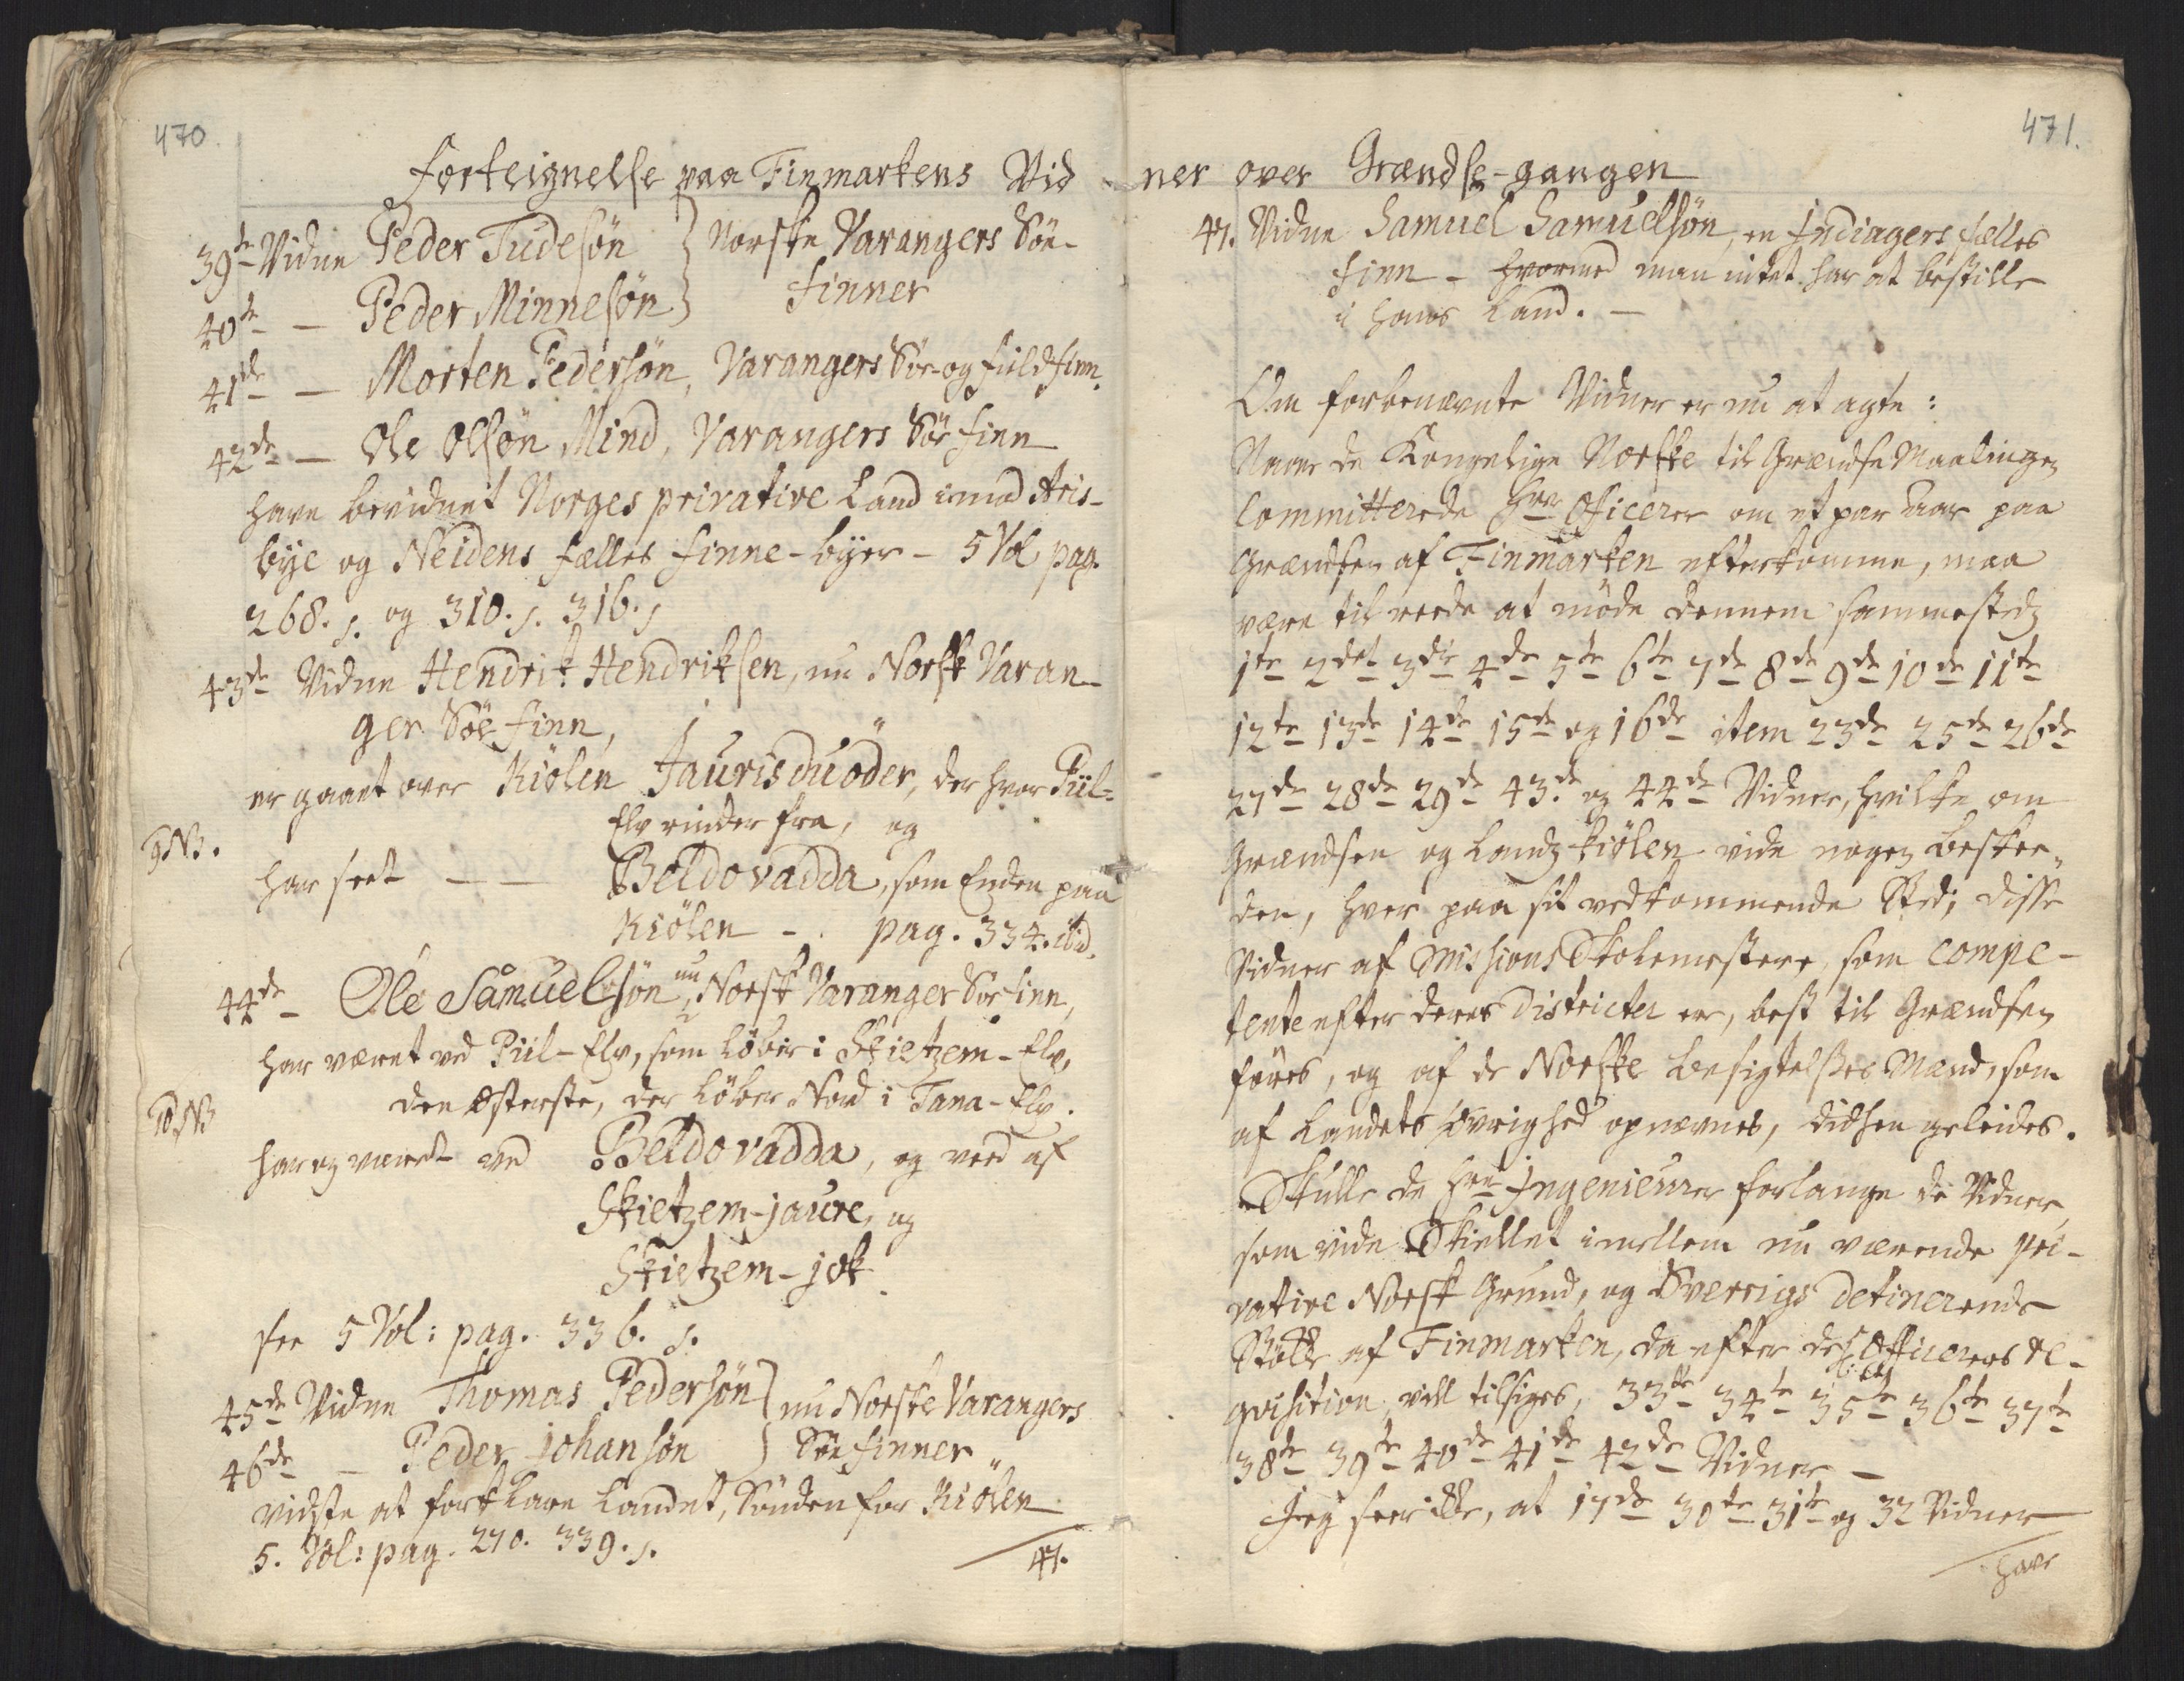 470.
Forteignelse paa Finmarkens Vid-
39te Vidne Peder Tudesøn } Norske Varangers Söe-
40te — Peder Minnesøn } Finner
41de — Morten Pedersøn, Varangers Söe- og fieldfinn.
42de — Ole Olsøn Mind, Varangers Söe finn
have bevidnet Norges privative Land imod Aris-
bye og Neidens fælles finne-byer - 5 Vol pag.
268. s. og 310. s. 316. s
43de Vidne Hendrik Hendriksen, nu Norsk Varan-
ger Söe finn,
er gaaet over Kiölen Jaurisduöder, der hvor Piil-
Elv rinder fra, og
9 NB.
har seet — — Beldovadda, som Enden paa
Kiölen - . pag. 334. ibid.
44de Ole Samuelsøn nu Norsk Varanger Söe finn,
har været ved Piil-Elv, som löber i Skietzem-Elv,
den Østerste, der löber Nord i Tana-Elv.
10 NB
har og været ved Beldovadda, og veed af
Skietzem-jaure, og
Skietzem-jok.
see 5 Vol: pag. 336. s.
45de Vidne Thomas Pedersøn } nu Norske Varangers
46de — Peder Johansøn } Söe finner
vidste at forklare Landet, Sönden for Kiölen
5. Vol: pag. 270. 339. s.
47.
471.
ner over Grændse-gangen
47. Vidne Samuel Samuelsøn, en Indiagers fælles
finn - hvormed man intet har at bestille
i hans Land. —
Om forbenævnte Vidner er nu at agte:
Naar de Kongelige Norske til Grændse Maalingen
Committerede Hrr Officerer om et par Aar paa
Grændsen af Finmarken efterkomme, maa
være til reede at møde dennem sammestedz
1te 2det 3die 4de 5te 6te 7de 8de 9de 10de 11te
12te 13de 14de 15de og 16de item 23de 25de 26de
27de 28de 29de 43de og 44de Vidner, hvilke om
Grændsen og Landz-kiölen vide nogen beskee-
den, hver paa sit vedkommende Sted; disse
Vidner af Missions Skolemestere, som compe-
tente efter deres Districter er, best til Grændsen
føres, og af de Norske besigtelses Mænd, som
af Landets Øvrighed opnævnes, didhen geleides.
Skulle de Hrr Ingenieurer forlange de Vidner,
som vide Skiellet imellem nu værende pri-
vative Norsk Grund, og Sverrigs detinerende
Støkke af Finmarken, da efter de Officerers re-
qvisition, vill tilsiges, 33te 34te 35te 36te 37te
38te 39te 40de 41de 42de Vidner —
Jeg seer ikke, at 17de 30te 31te og 32 Vidner
have